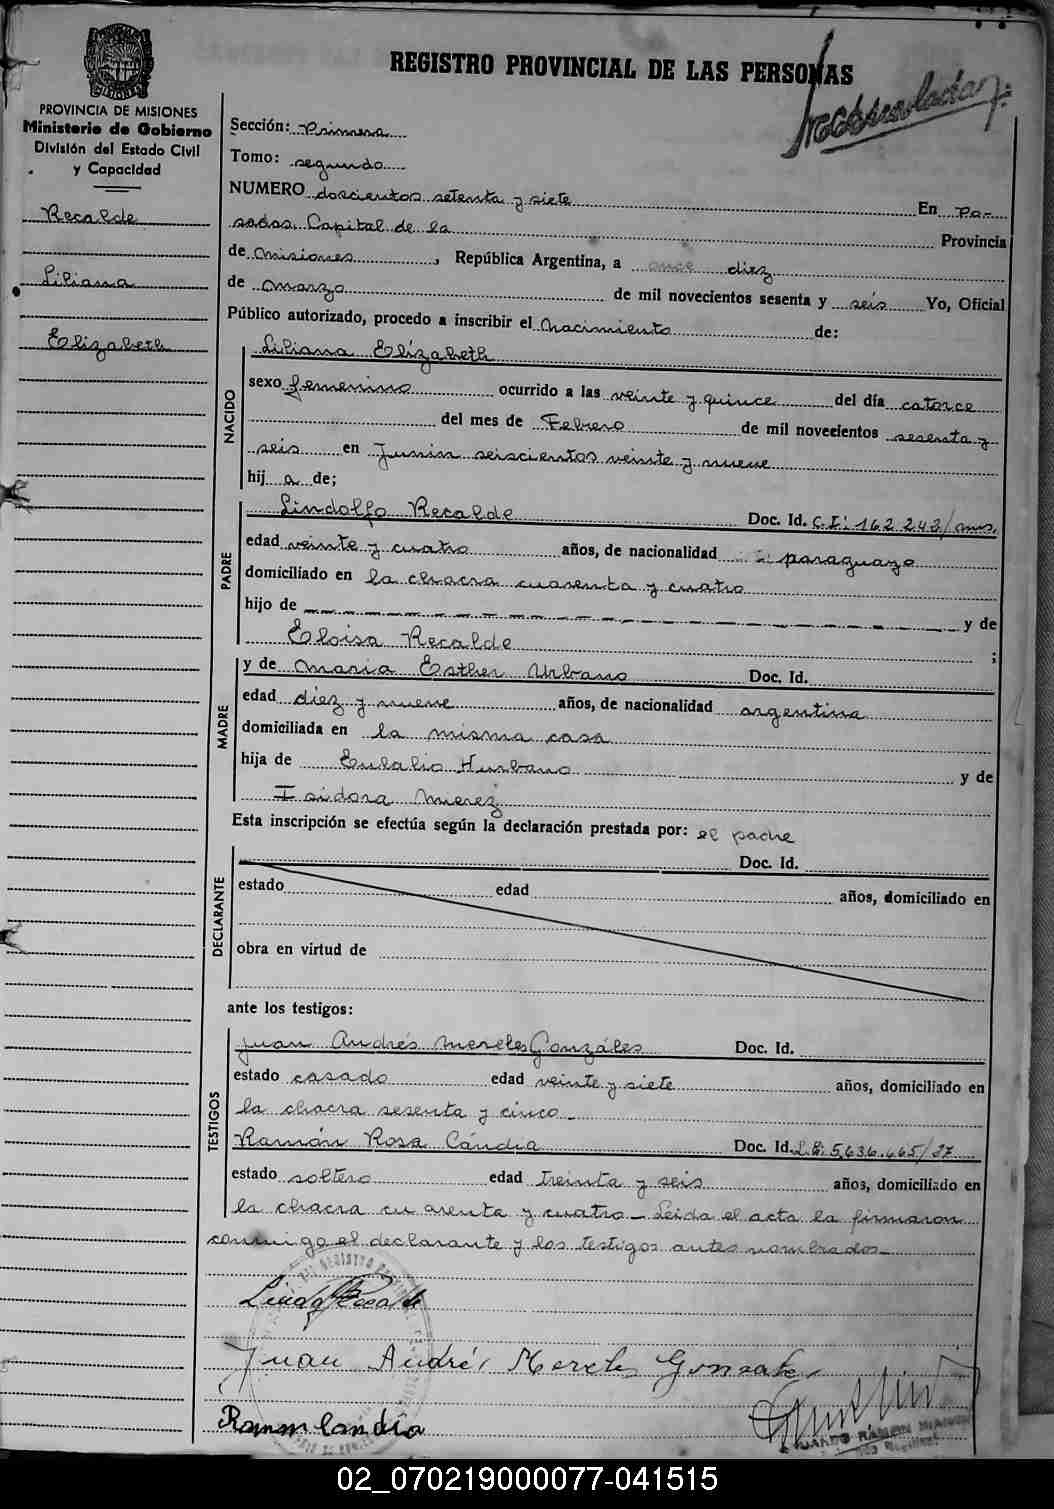 REGISTRO PROVINCIAL DE LAS PERSONAS
PROVINCIA DE MISIONES
Ministerio de Gobierno
División del Estado Civil
y Capacidad
Recalde
Liliana
Elizabeth
Sección: Primera
Tomo: segundo
NUMERO doscientos setenta y siete En Po-
sadas, Capital de la Provincia
de Misiones, República Argentina, a once diez
de Marzo de mil novecientos sesenta y seis Yo, Oficial
Público autorizado, procedo a inscribir el Nacimiento de:
NACIDO
Liliana Elizabeth
sexo femenino ocurrido a las veinte y quince del día catorce
del mes de Febrero de mil novecientos sesenta y
seis en Junin seiscientos veinte y nueve
hij a de;
PADRE
Lindolfo Recalde Doc. Id. C.I: 162.243/mis.
edad veinte y cuatro años, de nacionalidad paraguayo
domiciliado en la chacra cuarenta y cuatro
hijo de y de
Eloisa Recalde ;
MADRE
y de Maria Esther Urbano Doc. Id.
edad diez y nueve años, de nacionalidad argentina
domiciliada en la misma casa
hija de Eulalio Hurbano y de
Isidora Merez
Esta inscripción se efectúa según la declaración prestada por: el padre
DECLARANTE
Doc. Id.
estado edad años, domiciliado en
obra en virtud de
ante los testigos:
TESTIGOS
Juan Andrés Mereles Gonzáles Doc. Id.
estado casado edad veinte y siete años, domiciliado en
la chacra sesenta y cinco
Ramón Rosa Cándia Doc. Id. L.E: 5.636.465/37
estado soltero edad treinta y seis años, domiciliado en
la chacra cuarenta y cuatro - Leida el acta la firmaron
conmigo el declarante y los testigos antes nombrados-
Juan Andrés Mereles Gonzales
02_070219000077-041515